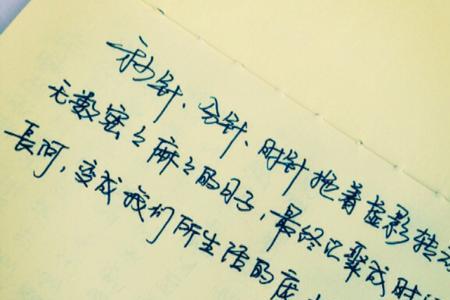 秒针、分针、时针拖着虚影转动
无数密密麻麻的日子,最终汇聚成时
长河,变成我们所生活的